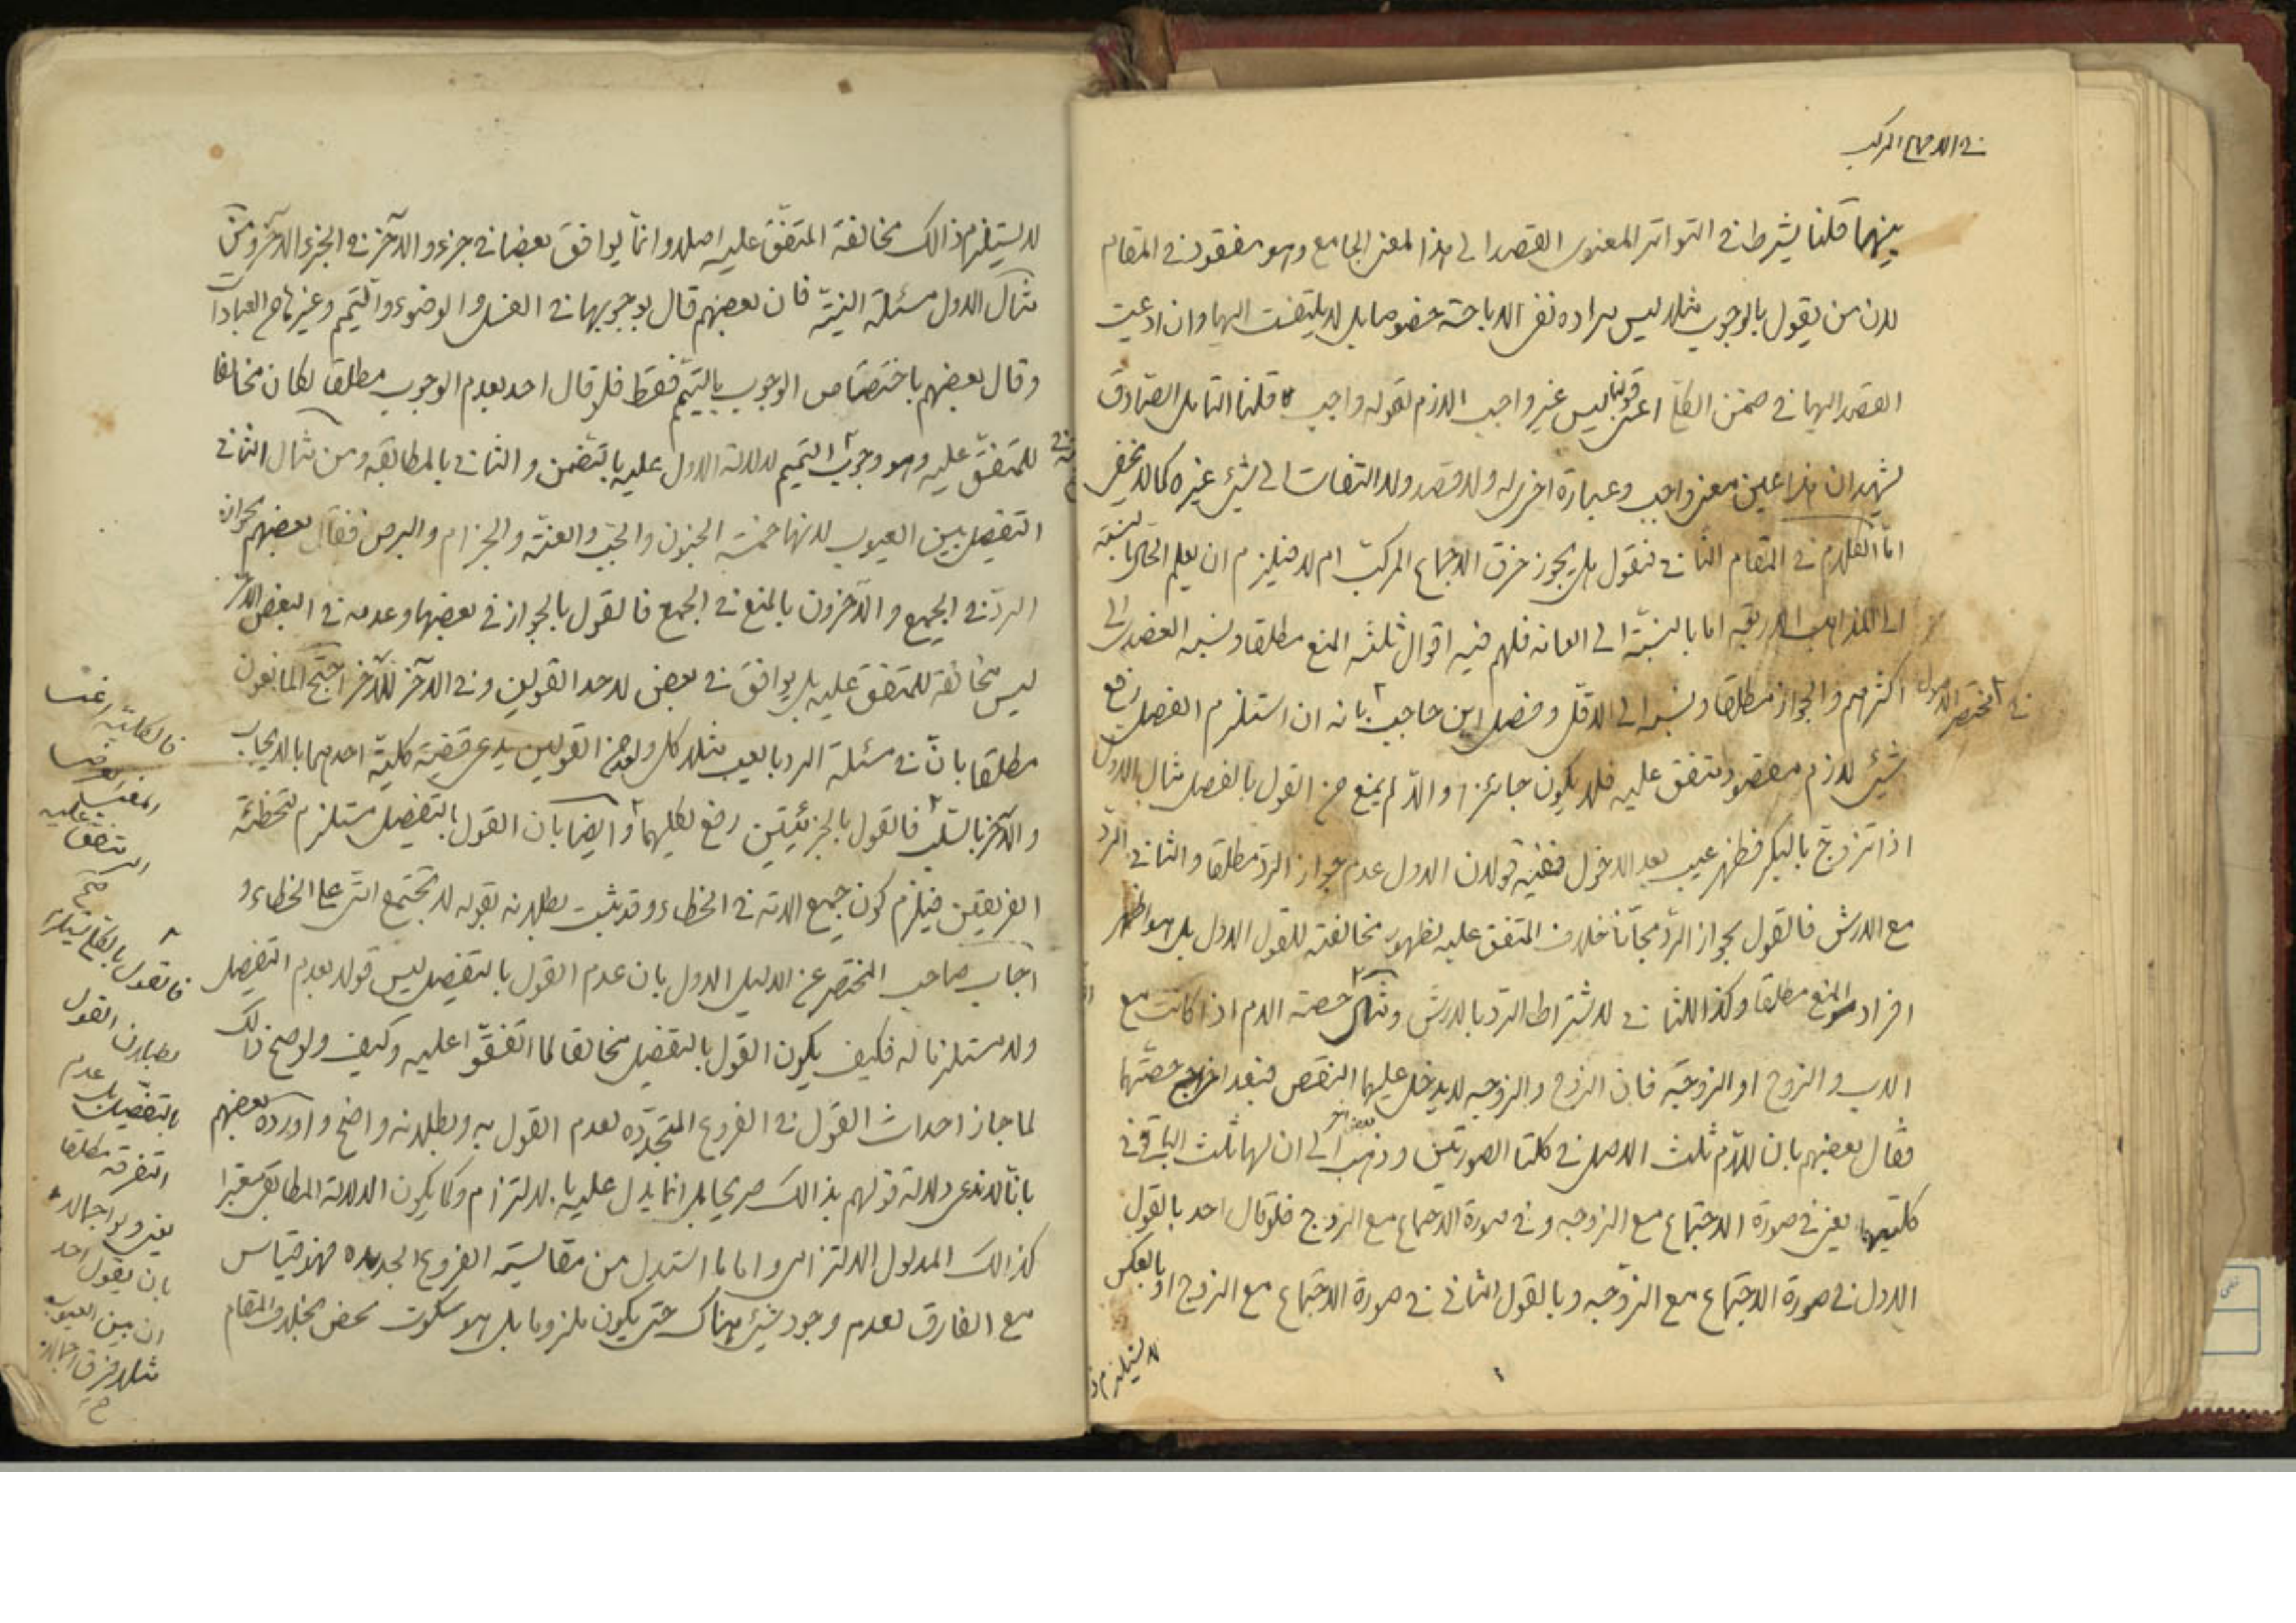 في الاجماع المركب
بينهما قلنا يشترط في التواتر المعنوى القصد الى هذا المعنى الجامع وهو مفقود في المقام
لان من يقول بالوجوب مثلا ليس مراده نفى الاباحة خصوصا بل لا يلتفت اليها وان ادعيت
القصد اليها في ضمن الكلّ اعنى قولنا ليس غير واجب اللازم لقوله واجب قلنا التامل الصادق
يشهد ان هذا عين معنى واجب وعبارة اخرى له ولا قصد ولا التفات الى شئ غيره كما لا يخفى
امّا الكلام في المقام الثاني فنقول هل يجوز خرق الاجماع المركب ام لا فيلزم ان يعلم الحال بالنسبة
الى المذاهب الاربعة اما بالنسبة الى العامه فلهم فيه اقوال ثلثة المنع مطلقا ونسبه العضدى الى
اكثرهم والجواز مطلقا ونسبه الى الاقلّ وفصل ابن حاجب بانه ان استلزم الفصل رفع
في مختصر الاصول
شئ لازم مقصود متفق عليه فلا يكون جائزا والّا لم يمنع من القول بالفصل مثال الاول
اذا تزوج بالبكر فظهر عيب بعد الدخول ففيه قولان الاول عدم جواز الردّ مطلقا والثاني الردّ
مع الارش فالقول بجواز الردّ مجّانا خلاف المتفق عليه لظهور مخالفته للقول الاول بل هو اظهر
افراد المنع مطلقا وكذا للثاني لاشتراط الرّد بالارش ومثال حصة الام اذا كانت مع
الاب والزوج او الزوجة فان الزوج والزوجه لا يدخل عليهما النقص فبعد اخراج حصّتهما
فقال بعضهم بان للامّ ثلث الاصل في كلتا الصورتين وذهب بعض آخر الى ان لها ثلث الباقى في
كلتيهما يعنى في صورة الاجتماع مع الزوجه وفى صورة الاجتماع مع الزوج فلو قال احد بالقول
الاول في صورة الاجتماع مع الزوجه وبالقول الثاني في صورة الاجتماع مع الزوج او بالعكس
لا يستلزم ذ
لا يستلزم ذالك مخالفة المتفق عليه اصلا وانما يوافق بعضا في جزء والآخر في الجزء الآخر ومن
مثال الاول مسئلة النيّة فان بعضهم قال بوجوبها في الغسل والوضوء والتيمم وغيرها من العبادات
وقال بعضهم باختصاص الوجوب بالتيمم فقط فلو قال احد بعدم الوجوب مطلقا لكان مخالفا
للمتفق عليه وهو وجوب التيمم لدلالة الاول عليه بالتضمن والثاني بالمطابقه ومن مثال الثاني
التفصيل بين العيوب لانها خمسة الجنون والجبّ والعنّة والجزام والبرص فقال بعضهم بجواز
الردّ في الجميع والآخرون بالمنع في الجميع فالقول بالجواز في بعضها وعدمه في البعض الآخر
ليس مخالفة للمتفق عليه بل يوافق في بعض لاحد القولين وفي الآخر للآخر احتج المانعون
مطلقا بانّ في مسئلة الرد بالعيب مثلا كل واحد من القولين يدعى قضية كلية احدهما بالايجاب
والآخر بالسلب فالقول بالجزئيّتين رفع لكليهما وايضا بان القول بالتفصيل مستلزم لتخطئة
الفريقين فيلزم كون جميع الامّة في الخطاء وقد يثبت بطلانه بقوله لا تجتمع امّتى على الخطاء و
اجاب صاحب المختصر عن الدليل الاول بان عدم القول بالتفصيل ليس قولا بعدم التفصيل
ولا مستلزما له فكيف يكون القول بالتفصيل مخالفا لما اتفقوا عليه وكيف ولو صح ذالك
لما جاز احداث القول في الفروع المتجدّده لعدم القول به وبطلانه واضح واورده بعضهم
بانا لا ندعى دلالة قولهم بذالك صريحا بل انما يدل عليه بالالتزام وكما يكون الدلالة المطابق معتبرا
كذالك المدلول الالتزامى واما ما استدل من مقايسة الفروع الجديده فهو قياس
مع الفارق لعدم وجود شئ هناك حتى يكون ملزوما بل هو سكوت محض بخلاف المقام
المتفق عليه
صح
فالقول بالكلّ يستلزم
بطلان القول
بالتفصيل بل عدم
التفرقه مطلقا
يعنى ولو اجمالا
بان يقول احد
ان بين العيوب
مثلا فرق اجمالا
صح